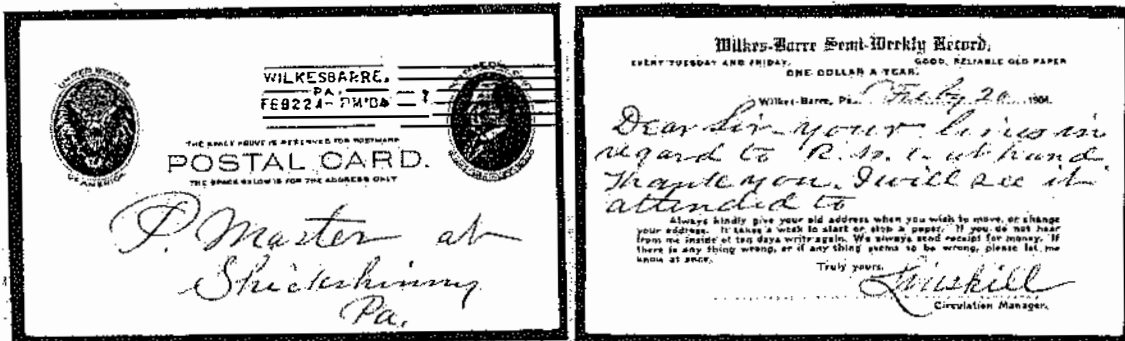 WILKESBARRE,
PA.
FEB 22 4- PM '04
UNITED STATES
OF AMERICA
THE SPACE ABOVE IS RESERVED FOR POSTMARK
POSTAL CARD.
THE SPACE BELOW IS FOR THE ADDRESS ONLY
P. Master at
Shickshinny
Pa.
Wilkes-Barre Semi-Weekly Record,
EVERY TUESDAY AND FRIDAY. GOOD, RELIABLE OLD PAPER
ONE DOLLAR A YEAR.
Wilkes-Barre, Pa. Feby 20 1904.
Dear Sir your lines in
regard to R. at hand
Thank you. I will see it
attended to
Always kindly give your old address when you wish to move, or change
your address. It takes a week to start or stop a paper. If you do not hear
from me inside of ten days write again. We always send receipt for money. If
there is any thing wrong, or if any thing seems to be wrong, please let me
know at once.
Truly yours,
Linskill
Circulation Manager.